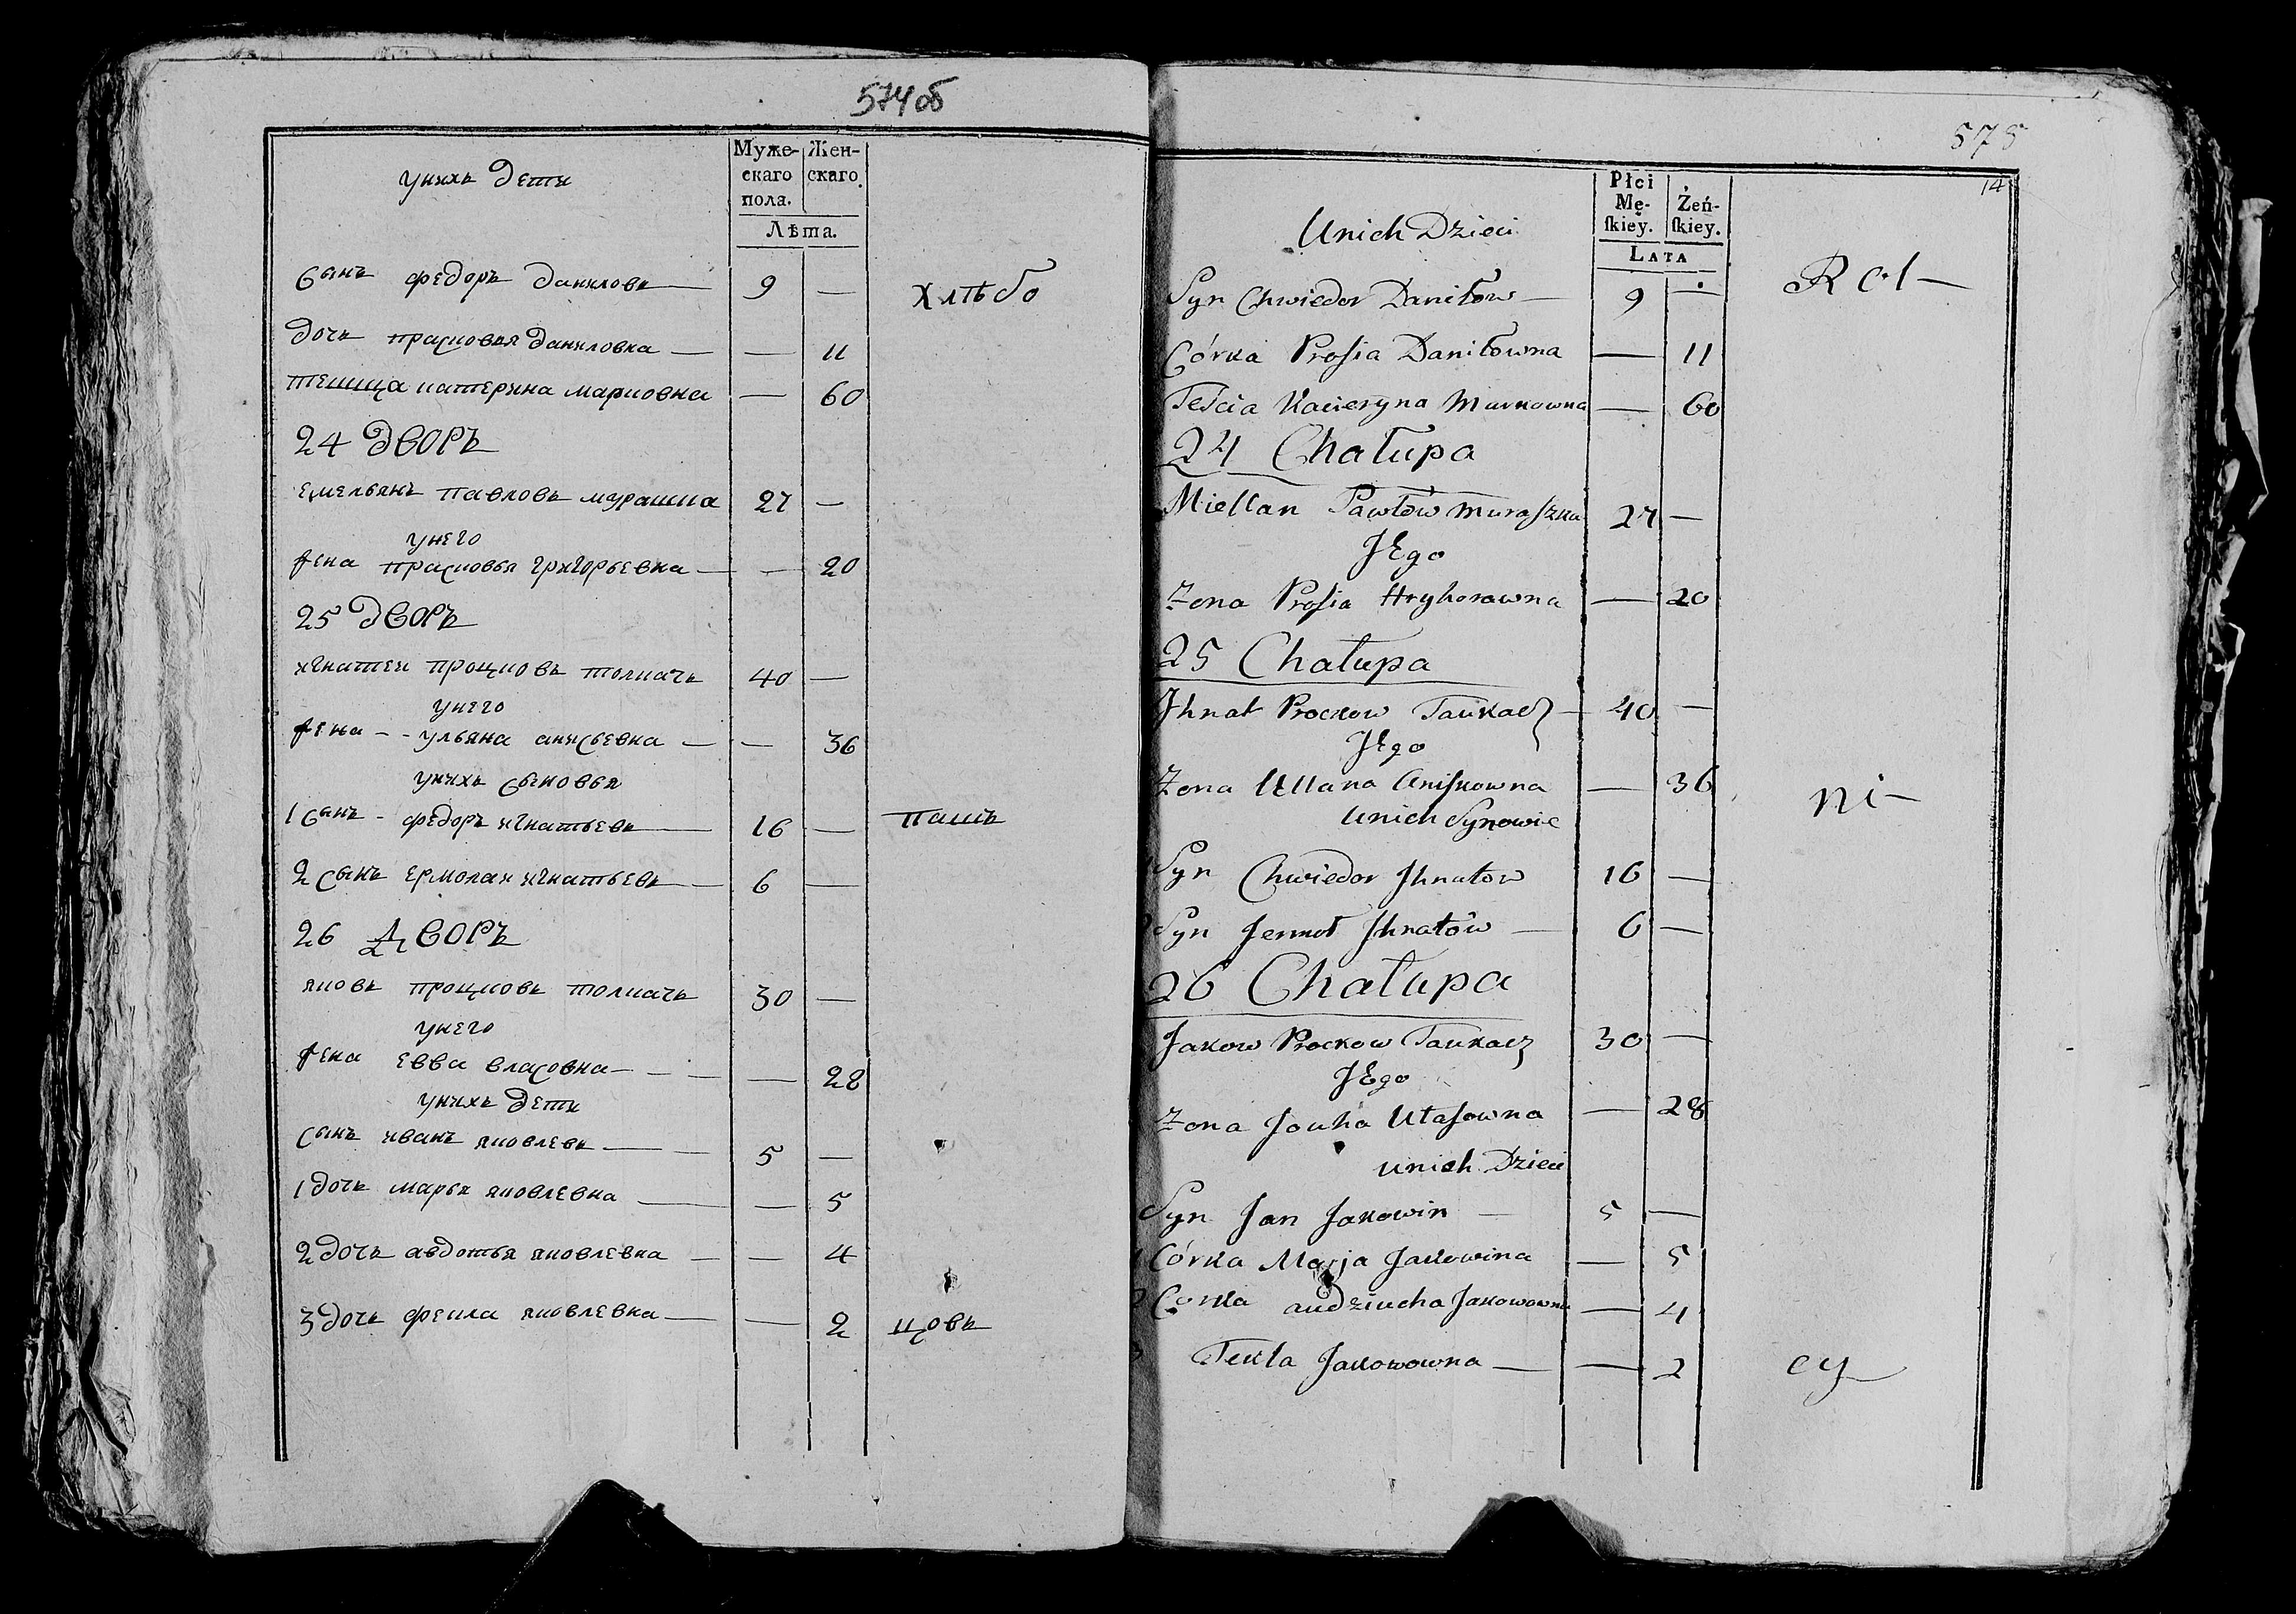 574об
Муже-
скаго
пола.
Жен-
скаго.
Лѣта.
унихъ дети
Сынъ федоръ даниловъ — 9 — хлѣбо
дочь прасковья даниловна — — 11
тещица катерина марковна — 60
24 дворъ
емельянъ павловъ мурашка 27 —
унего
жена прасковья григорьевна — — 20
25 дворъ
игнатей процковъ толкачь 40 —
унего
жена - - ульяна анисьевна — — 36
унихъ сыновья
1 Сынъ - федоръ игнатьевъ — 16 — пашъ
2 сынъ ермолай игнатьевъ — 6 —
26 Дворъ
яковъ процковъ толкачь 30 —
унего
жена евва власовна — — — — 28
унихъ дети
сынъ иванъ яковлевъ — — 5 —
1 дочь марья яковлевна — — 5
2 дочь авдотья яковлевна — — 4
3 дочь фекла яковлевна — — 2 цовъ
575
14
Płci
Mę-
ſkiey.
Żeń-
ſkiey.
LATA
Unich Dzieci
Syn Chwiedor Daniłow — 9 — Rol-
Córka Prosia Daniłowna — 11
Teścia Kacieryna Markowna — 60
24 Chałupa
Miellan Pawłow Muraszka 27 —
JEgo
Zona Prosia Hryhorawna — 20
25 Chałupa
Jhnat Prockow Taukacz — 40 —
JEgo
Zona Ullana Aniskowna — 36 ni-
unich Synowie
Syn Chwiedor Jhnatow 16 —
Syn Jermoł Jhnatów — 6 —
26 Chałupa
Jakow Prockow Taukacz 30 —
JEgo
Zona Jouha Ułasowna — 28
unich Dzieci
Syn Jan Jakowin — 5 —
Córka Marja Jakowina — 5
Corka audziucha Jakowowna — 4
Tekla Jakowowna — — 2 cy